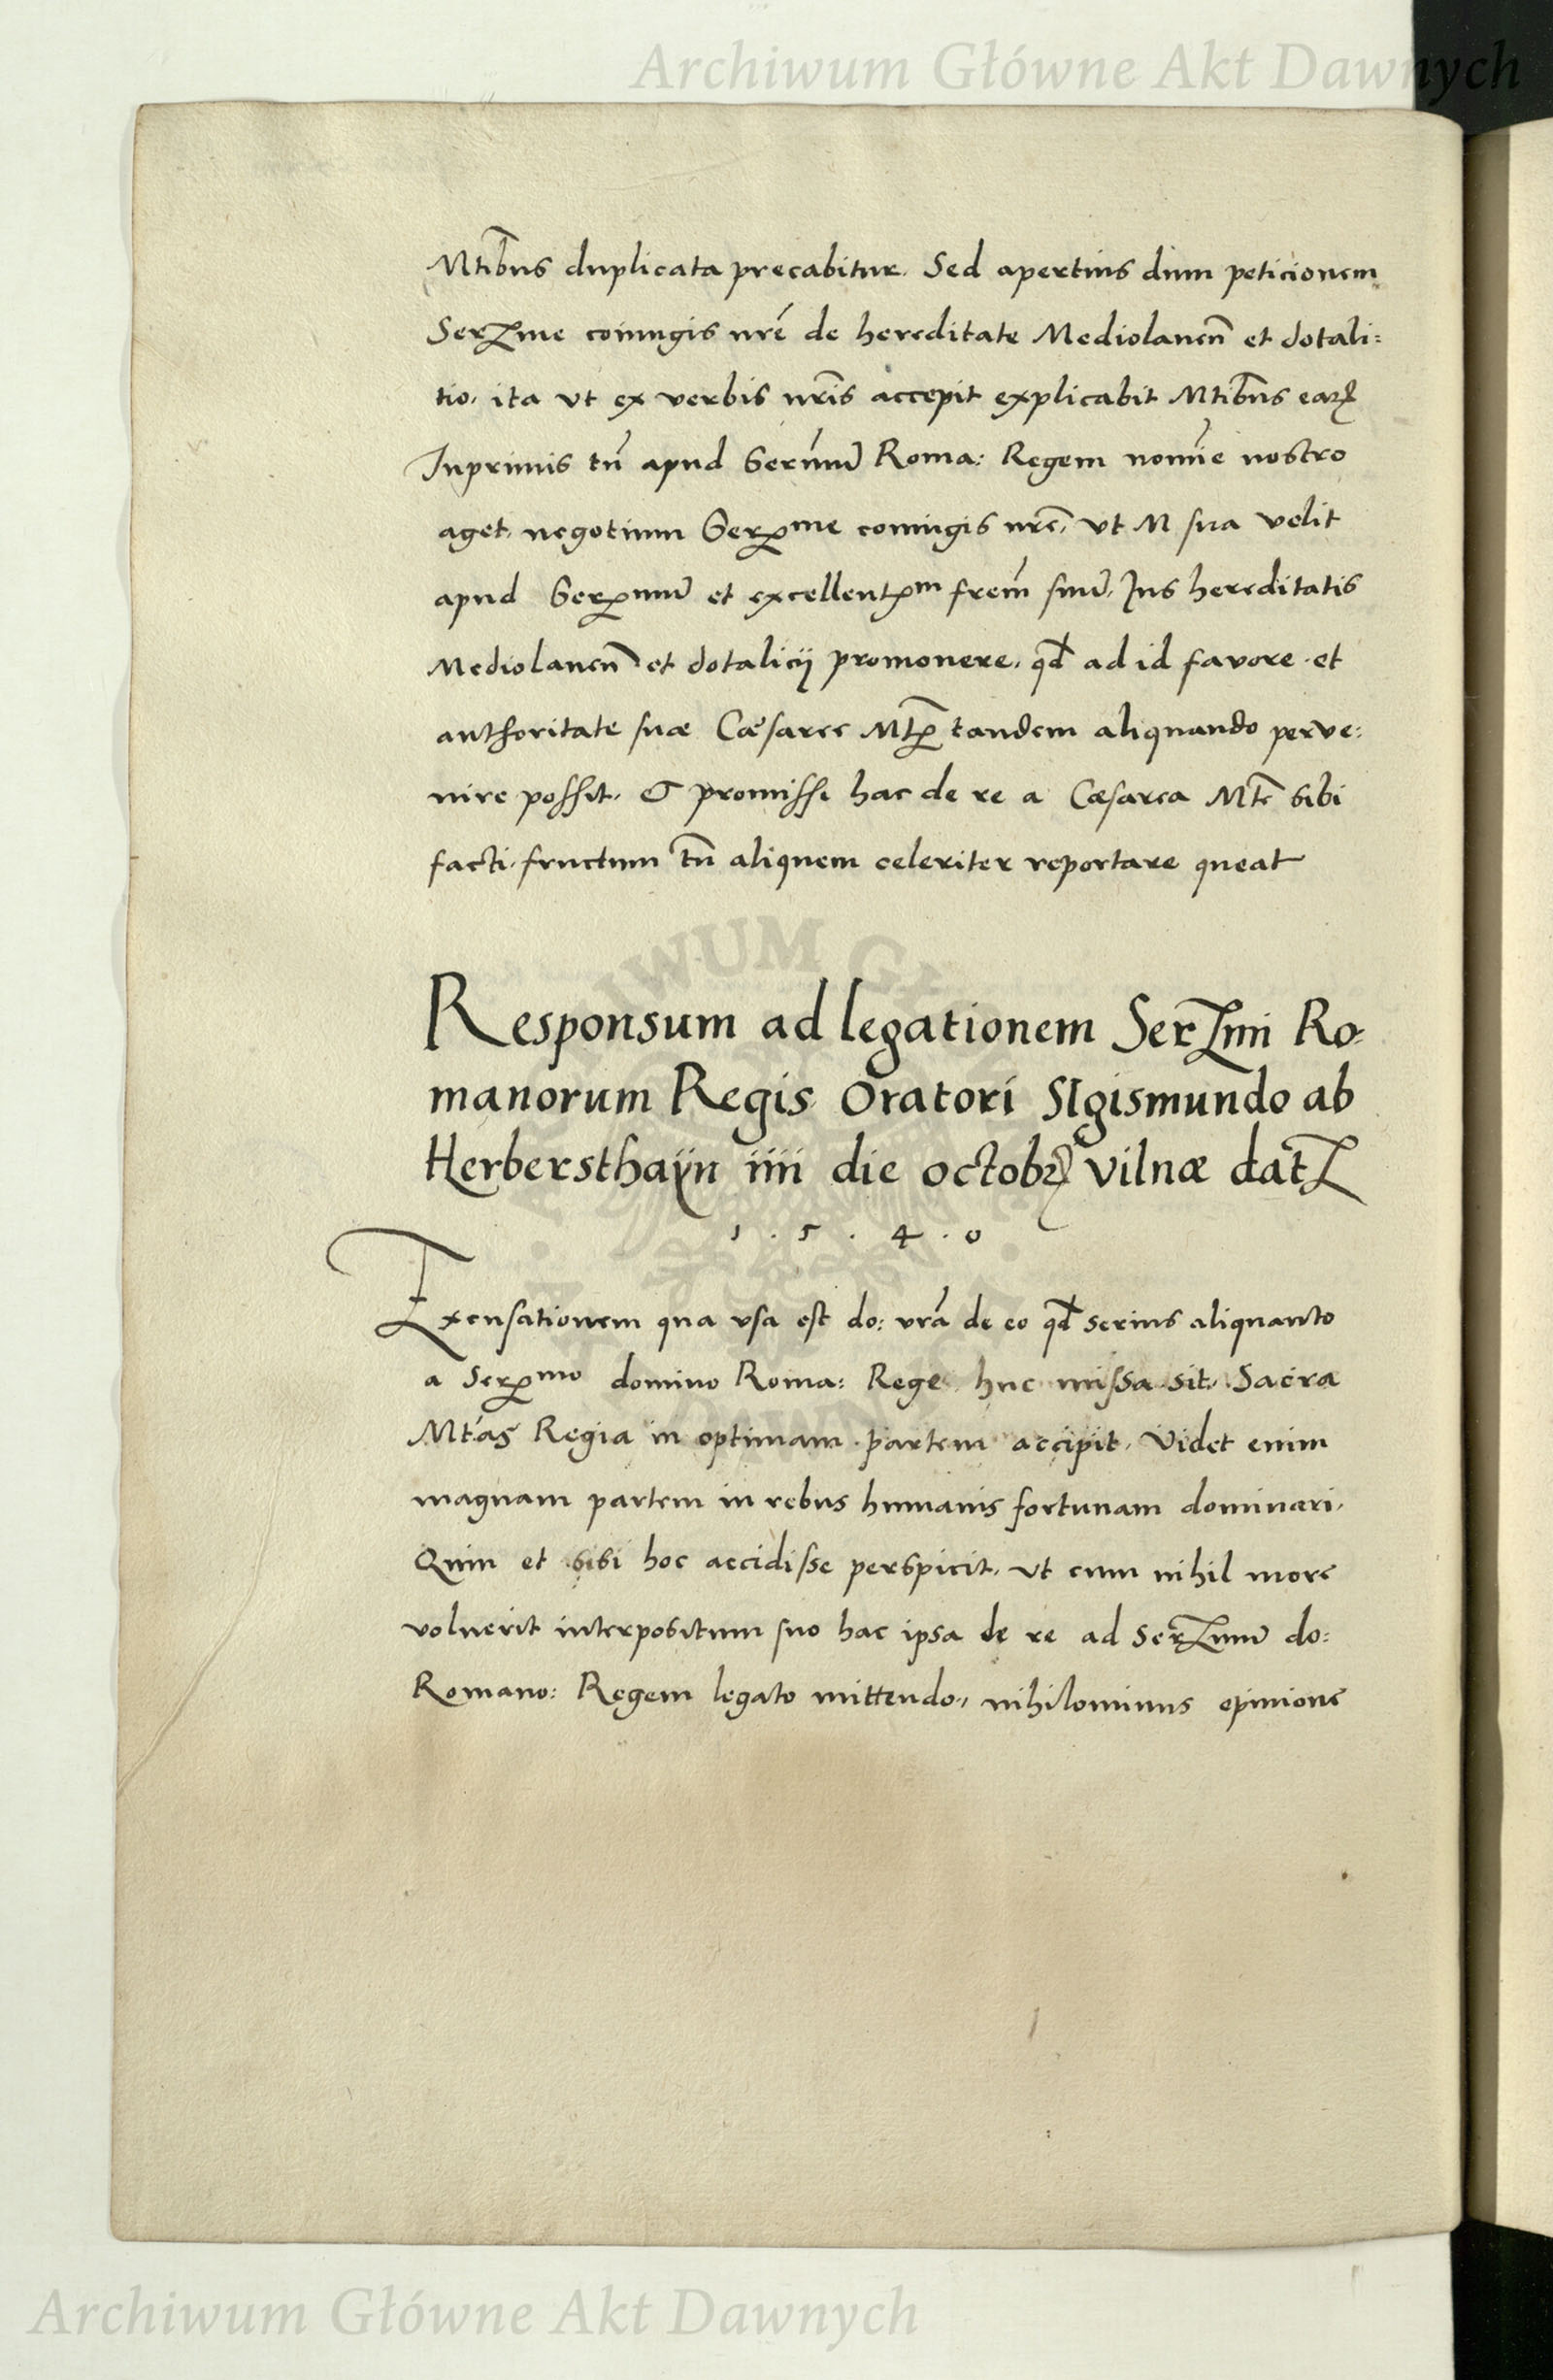 Archiwum Główne Akt Dawnych
Mtibus duplicata precabitur. Sed apertius dum peticionem
Serme coniugis nre de hereditate Mediolanen et dotali:
tio, ita ut ex verbis nris accepit explicabit Mtibus earum
Inprimis tn apud Sermum Roma: Regem nomine nostro
aget, negotium Serme coniugis nre, ut M sua velit
apud Sermum et excellentm frem suum, Ius hereditatis
Mediolanen et dotalicij promovere, qd ad id favore et
authoritate suæ Cæsaree Mtis tandem aliquando perve:
nire possit, & promissi hac de re a Cæsarea Mte sibi
facti, fructum tn aliquem celeriter reportare queat
Responsum ad legationem Sermi Ro:
manorum Regis Oratori Sigismundo ab
Herbersthaÿn iiii die octobr vilnæ dat
1 . 5 . 4 . 0
Excusationem qua usa est do: vra de eo qd serius aliquanto
a Sermo domino Roma: Rege huc missa sit, Sacra
Mtas Regia in optimam partem accipit, Videt enim
magnam partem in rebus humanis fortunam dominari,
Quin et sibi hoc accidisse perspicit, ut cum nihil more
voluerit interpositum suo hac ipsa de re ad Sermum do:
Romano: Regem legato mittendo, nihilominus opinione
Archiwum Główne Akt Dawnych